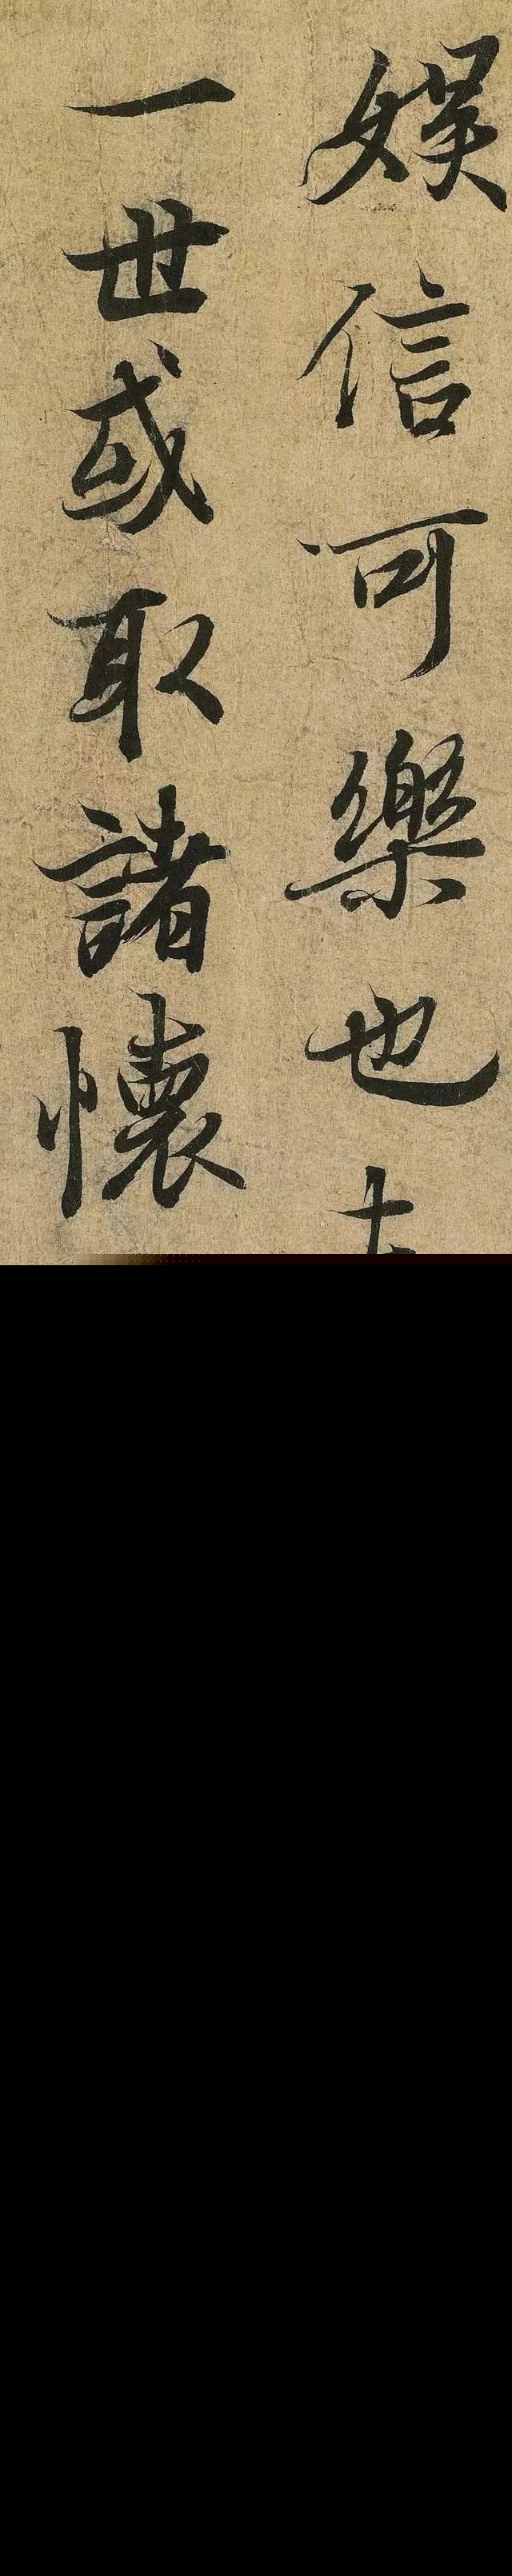 娛信可樂也
一世或取諸懷